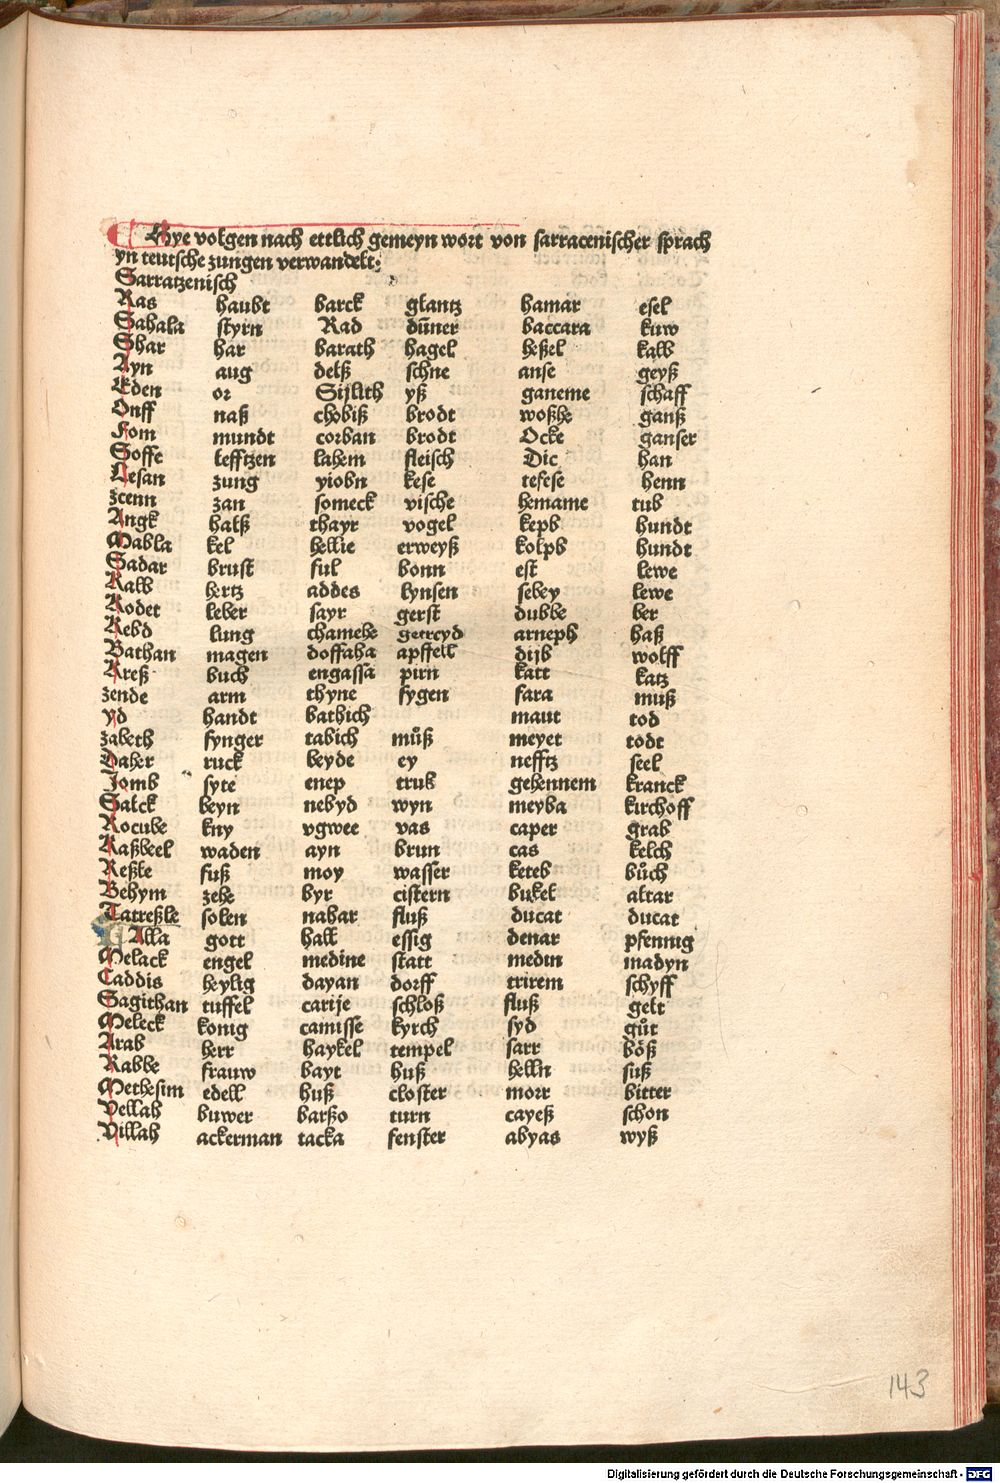 Hye volgen nach ettlich gemeyn wort von sarracenischer sprach
yn teutsche zungen verwandelt:
Sarratzenisch
Ras haubt barck glantz hamar esel
Sahala styrn Rad dūner baccara kuw
Shar har barath hagel heßel kalb
Ayn aug delß schne anse geyß
Eden or Sijlith yß ganeme schaff
Onff naß chobiß brodt woßhe ganß
Fom mundt corban brodt Ocke ganser
Soffe lefftzen lahem fleisch Dic han
Lesan zung yiobn kese tefese henn
zcenn zan someck vische hemame tub
Angk halß thayr vogel kepb hundt
Mabla kel hellie erweyß kolpb hundt
Sadar brust ful bonn est lewe
Kalb hertz addes lynsen sebey lewe
Rodet leber sayr gerst dubbe ber
Rebd lung chamehe getreyd arneph haß
Bathan magen doffaha apffell dijb wolff
Kreß buch engassa pirn katt katz
zende arm thyne fygen fara muß
yd handt bathich maut tod
zabeth fynger tabich můß meyet todt
Daher ruck beyde ey nefftz seel
Jomb syte enep trub gehennem kranck
Salck beyn nebyd wyn meyba kirchoff
Rocube kny vgwee vas caper grab
Raßbeel waden ayn brun cas kelch
Reßle fuß moy wasser keteb bůch
Behym zehe byr cistern bukel altar
Tatreßle solen nahar fluß ducat ducat
Alla gott hall essig denar pfennig
Melack engel medine statt medin madyn
Caddis heylig dayan dorff trirem schyff
Sagithan tuffel carije schloß fluß gelt
Meleck konig camisse kyrch syd gůt
Arab herr haykel tempel sarr bőß
Rabbe frauw bayt huß helln suß
Methesim edell huß closter morr bitter
Vellah buwer barßo turn cayeß schon
Villah ackerman tacka fenster abyas wyß
143
Digitalisierung gefördert durch die Deutsche Forschungsgemeinschaft - DFG